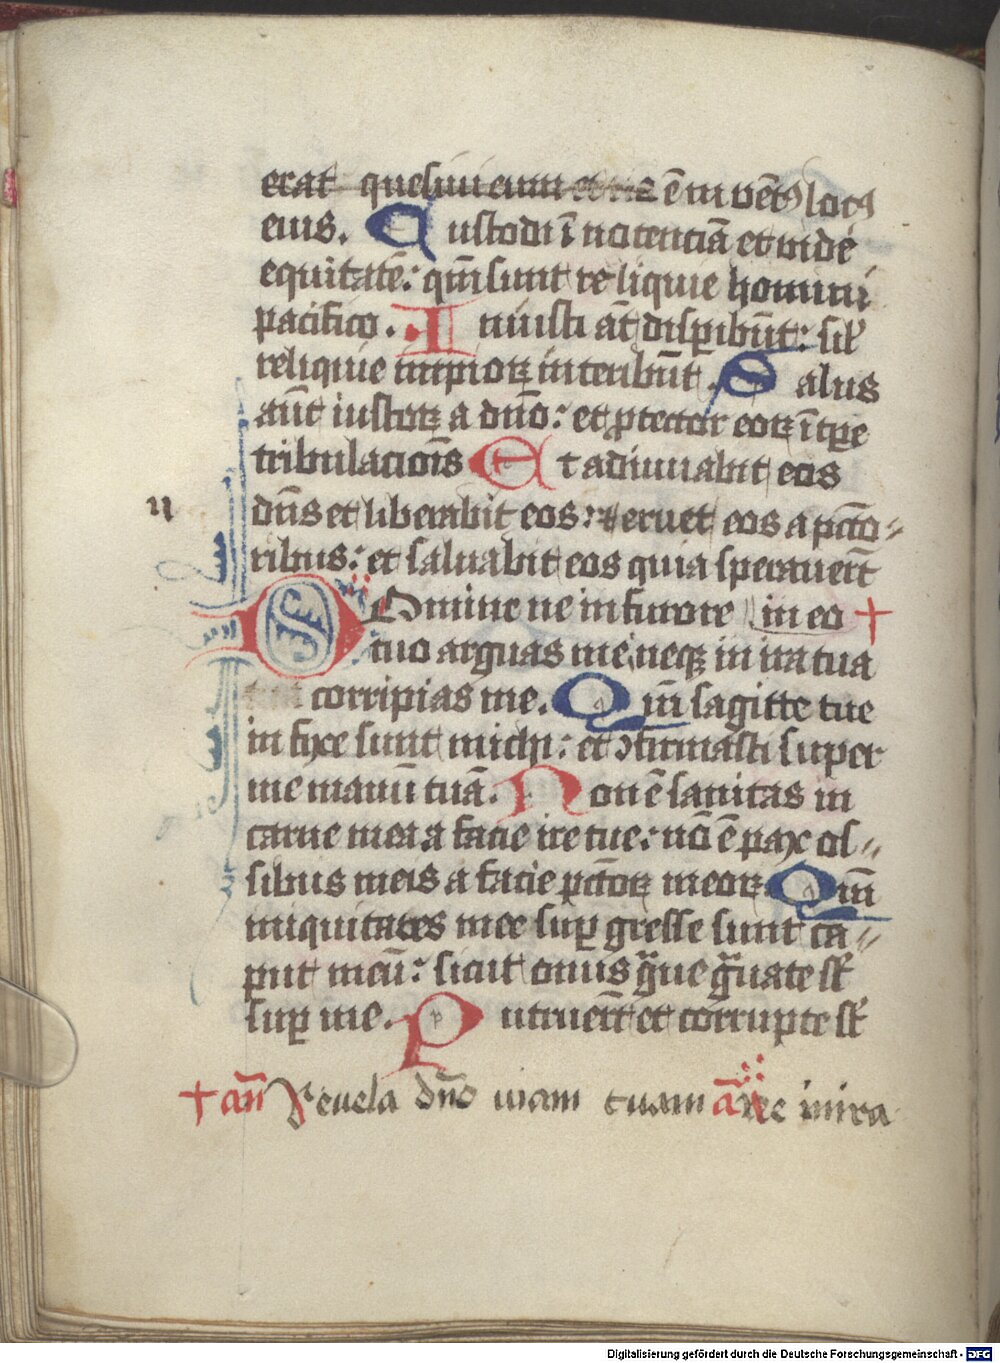 erat quesiui eum et nō ē inuētꝰ locꝰ
eius. Custodi īnocenciā et vide
equitatē: qm̄ sunt reliquie homini
pacifico. Iniusti at̄ disꝑibūt: sil̉
reliquie impioꝝ interibūt. Salus
aūt iustoꝝ a dn̄o: et ꝓtector eoꝝ ī tꝑe
tribulacioīs Et adiuuabit eos
dn̄s et liberabit eos: et eruet eos a pcc̄o⸗
ribus: et saluabit eos quia sperauer̄t
Domine ne in furore in eo +
tuo arguas me neqꝫ in ira tua
corripias me. Qm̄ sagitte tue
infixe sunt michi: et ↄfirmasti super
me manū tuā. Non ē sanitas in
carne mea a facie ire tue: nō ē pax os⸗
sibus meis a facie pctōꝝ meoꝝ Qm̄
iniquitates mee suꝑgresse sunt ca⸗
put meū: sicut onus gͣue gͣuate st̄
suꝑ me. Putruer̄t et corrupte st̄
+ an̄ Reuela dn̄o uiam tuam a᷑ Nec in ira